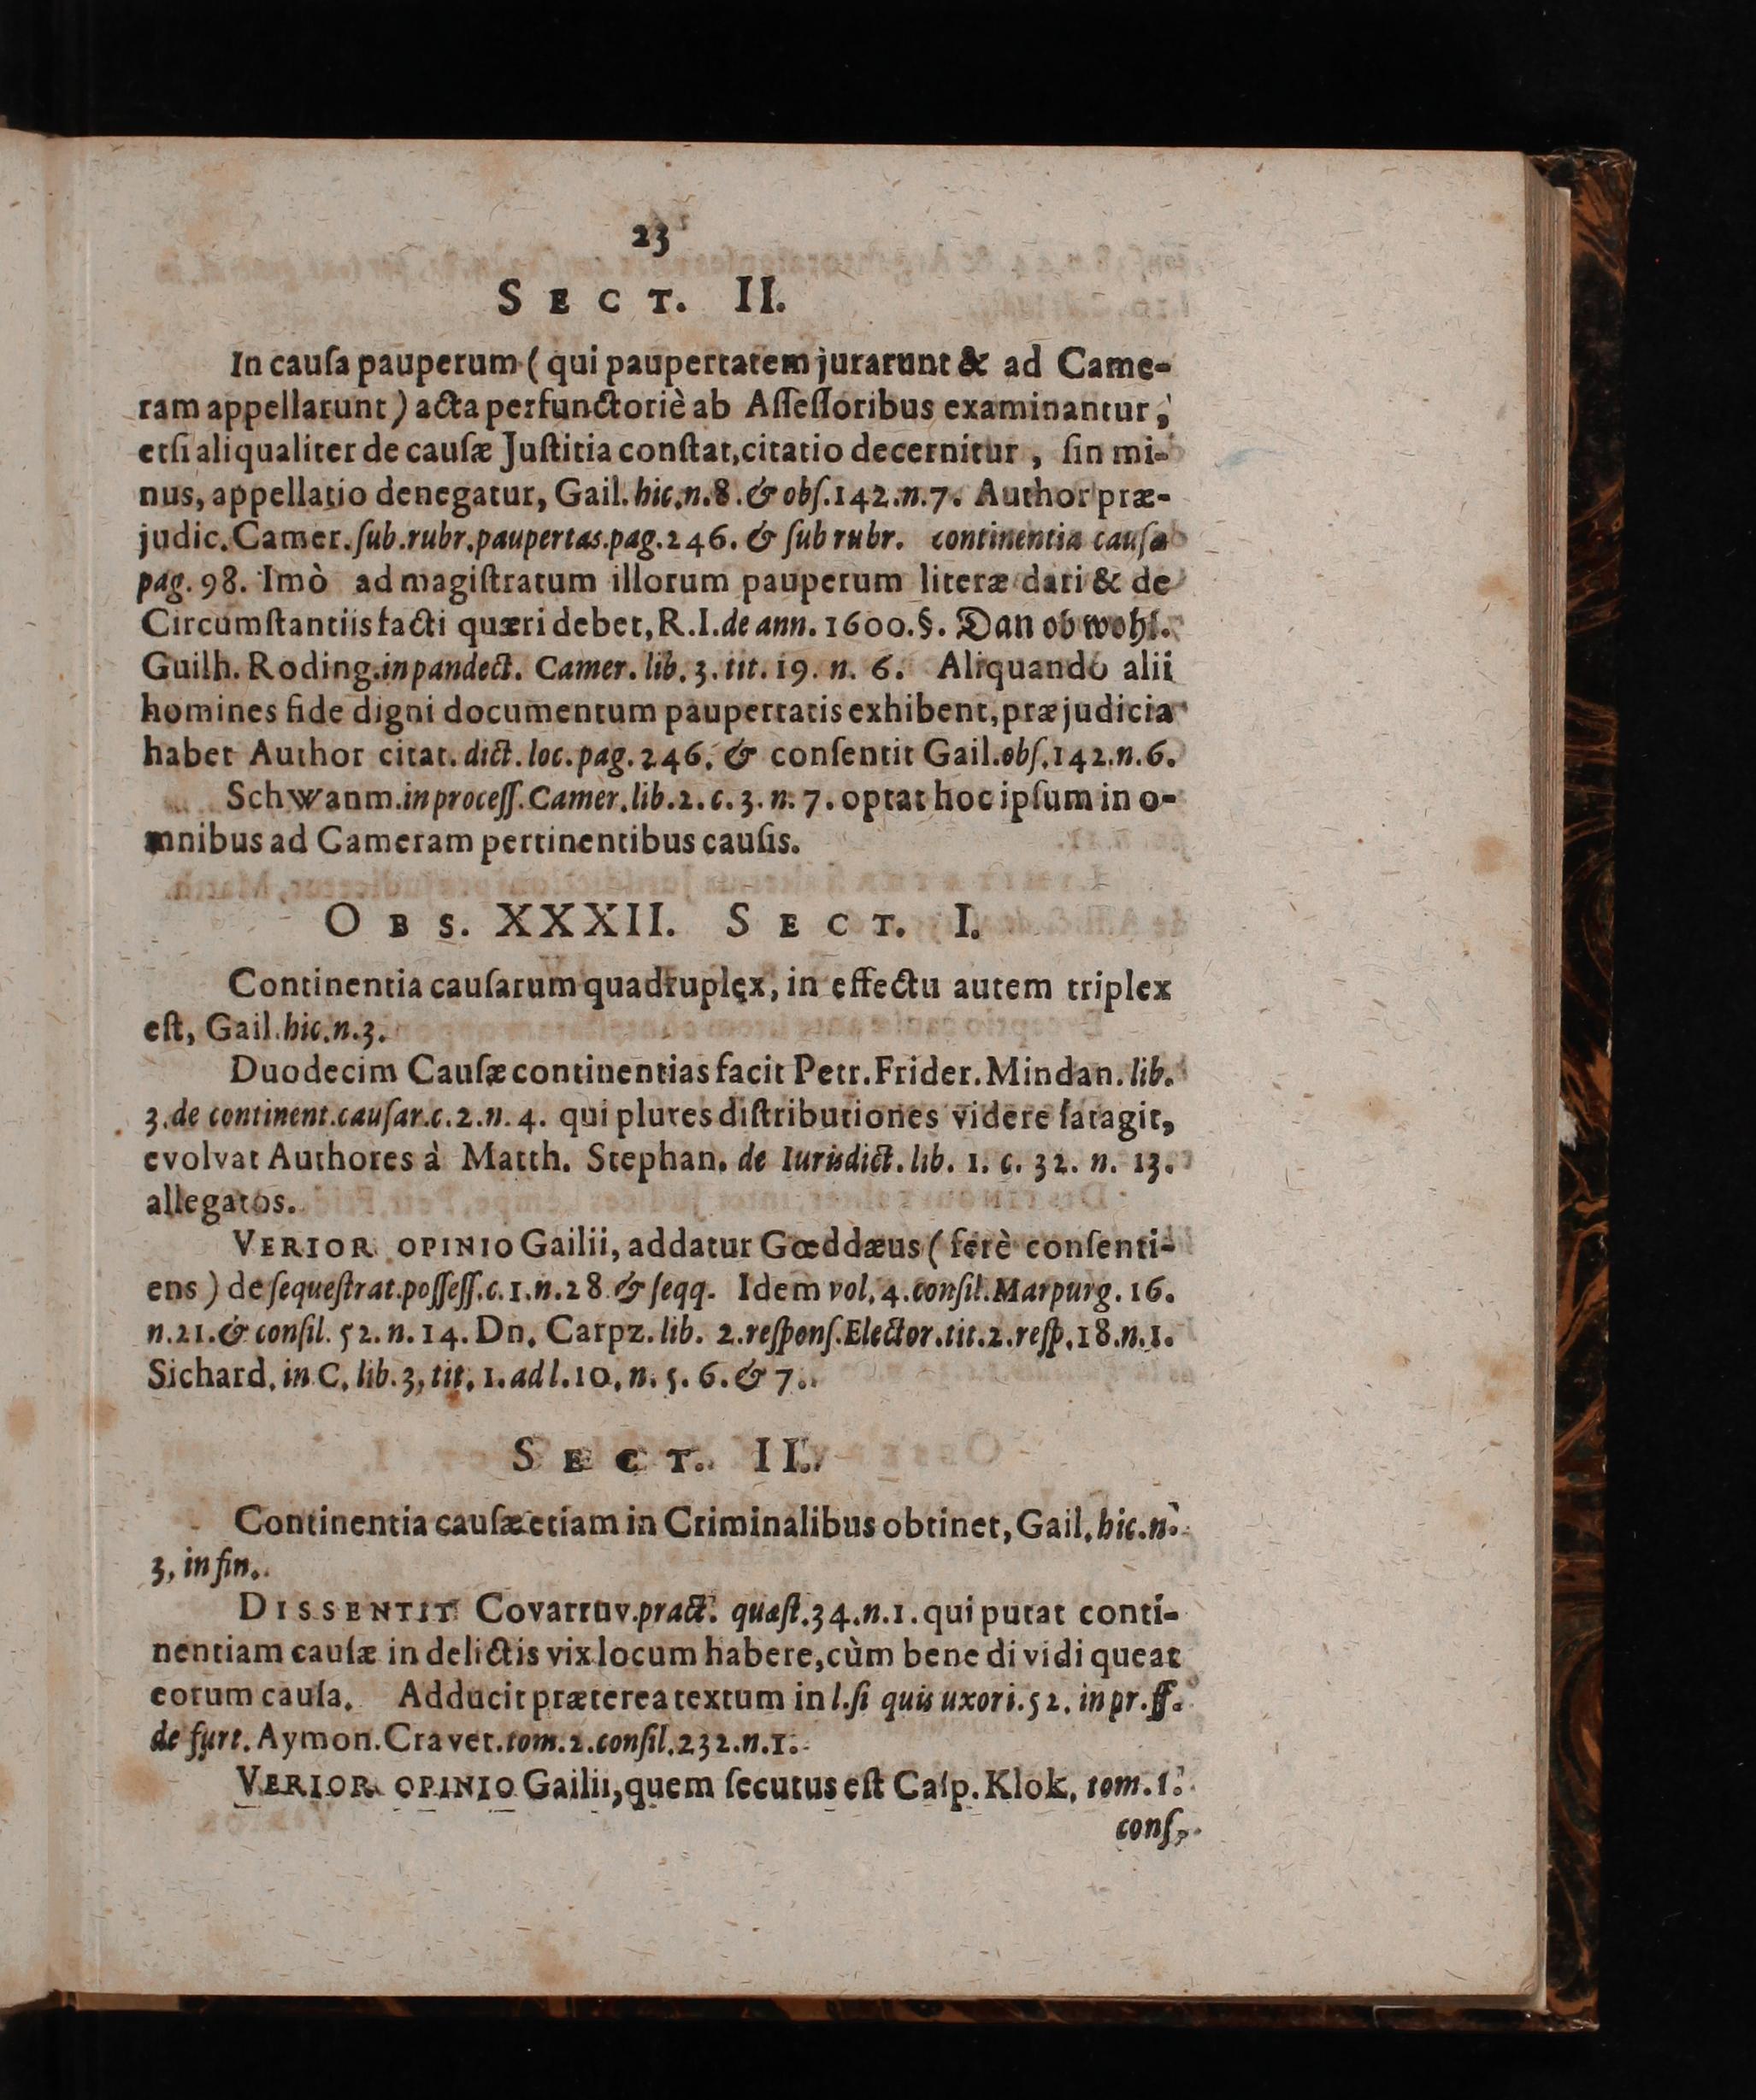 23
SECT. II.
In cauſa pauperum (qui paupertatem jurarunt & ad Came-
ram appellarunt) acta perfunctoriè ab Aſſeſſoribus examinantur,
etſi aliqualiter de cauſæ Juſtitia conſtat, citatio decernitur, ſin mi-
nus, appellatio denegatur, Gail. hic. n. 8. & obſ. 142. n. 7. Author præ-
judic. Camer. ſub. rubr. paupertas. pag. 246. & ſub rubr. continentia cauſa
pag. 98. Imò ad magiſtratum illorum pauperum literæ dari & de
Circumſtantiis facti quæri debet, R. I. de ann. 1600. §. Dan ob wohl.
Guilh. Roding. in pandect. Camer. lib. 3. tit. 19. n. 6. Aliquando alii
homines fide digni documentum paupertatis exhibent, præjudicia
habet Author citat. dict. loc. pag. 246. & conſentit Gail. obſ. 142. n. 6.
Schwanm. in proceſſ. Camer. lib. 2. c. 3. n. 7. optat hoc ipſum in o-
mnibus ad Cameram pertinentibus cauſis.
OBS. XXXII. SECT. I.
Continentia cauſarum quadruplex, in effectu autem triplex
eſt, Gail. hic. n. 3.
Duodecim Cauſæ continentias facit Petr. Frider. Mindan. lib.
3. de continent. cauſar. c. 2. n. 4. qui plures diſtributiones videre ſatagit,
evolvat Authores à Matth. Stephan. de Iurisdict. lib. 1. c. 32. n. 13.
allegatos.
VERIOR OPINIO Gailii, addatur Gœddæus (ferè conſenti-
ens) de ſequeſtrat. poſſeſſ. c. 1. n. 28 & ſeqq. Idem vol. 4. conſil. Marpurg. 16.
n. 21. & conſil. 52. n. 14. Dn. Carpz. lib. 2. reſponſ. Elector. tit. 2. reſp. 18. n. 1.
Sichard. in C. lib. 3, tit. 1. ad l. 10. n. 5. 6. & 7.
SECT. II.
Continentia cauſæ etiam in Criminalibus obtinet, Gail. hic. n.
3, in fin.
DISSENTIT Covarruv. pract. quæſt. 34. n. 1. qui putat conti-
nentiam cauſæ in delictis vix locum habere, cùm bene dividi queat
eorum cauſa. Adducit præterea textum in l. ſi quis uxori. 52. in pr. ff.
de furt. Aymon. Cravet. tom. 2. conſil. 232. n. 1.
VERIOR OPINIO Gailii, quem ſecutus eſt Caſp. Klok, tom. 1.
conſ.